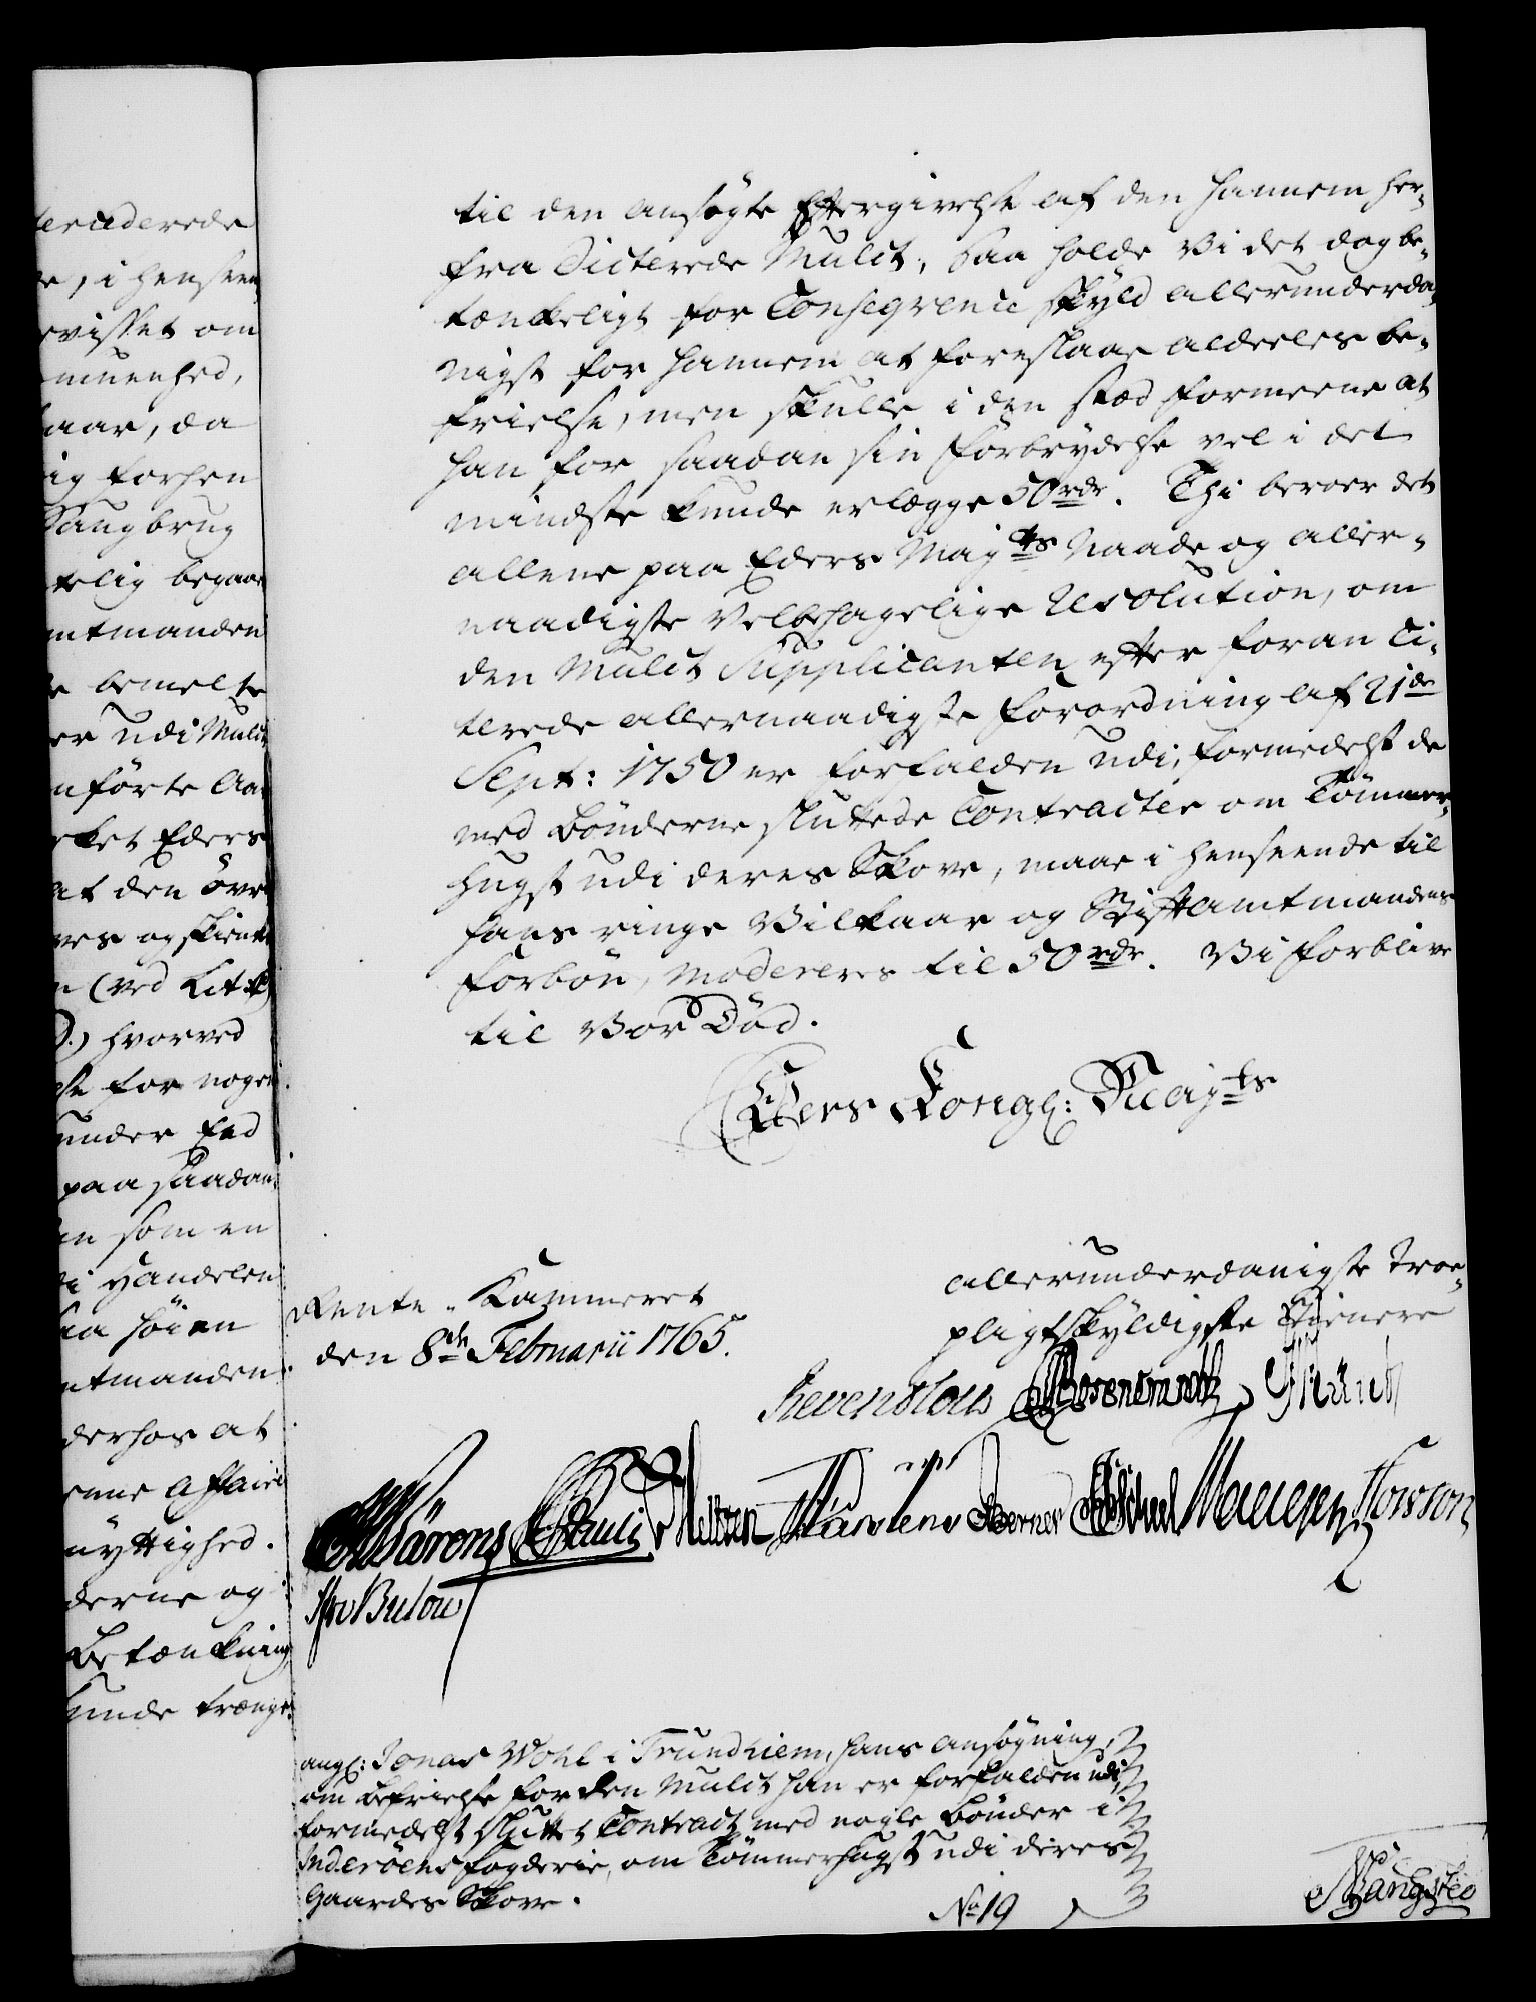 tenderede
e, i henseen
rvisset om
mmenhed,
aar, da
ig forhen
Saugbrug
telig begaae
mtmanden
e bemelte
er udi Mulct
nförte Aa
rket Eders
at den över
res og skient
n (ved Lit
D.) hvorved
se for nogen
under Eed
paa saadan
en som en
di Handelen
aa höien
mtmanden
derhos at
enne Affaire
nyttighed.
derne og
Betænkning
kunde trænge
til den ansögte Eftergivelse af den hannem her,
fra dicterede Mulct, saa holde Vi det dog be,
tænkeligt for Conseqvence skyld allerunderda,
nigst for hannem at foreslaae aldeeles be,
frielse, men skulle i den stæd formeene at
han for saadan sin forbrydelse vel i det
mindste kunde erlægge 50 rdr. Thi beroer det
allene paa Eders Majts Naade og aller,
naadigste Velbehagelige Resolution, om
den Mulct Supplicanten efter foran Ci,
terede allernaadigste Forordning af 21de
Sept: 1750 er forfalden udi, formedelst de
med Bönderne sluttede Contracter om Tömmer,
hugst udi deres Skove, maae i henseende til
hans ringe Vilkaar og Stiftamtmandens
forbön, modereres til 50 rdr. Vi forblive
til Vor Död.
Eders Kongl: Mayts
allerunderdanigste troe,
pligtskyldigste Tienere
Rente-Kammeret
den 8de Februarii 1765.
Reventlow Rosencrantz
Wärens Pauli Holsten Berner Scheel Howson
Bulow
angl: Jonas Wohl i Trundhiem, hans ansögning,
om Befrielse for den Mulct han er forfalden udi,
formedelst sluttet Contract med nogle Bönder i
Inderöens Fogderie, om Tömmerhugst udi deres
Gaardes Skove.
No 19
Vangsteo